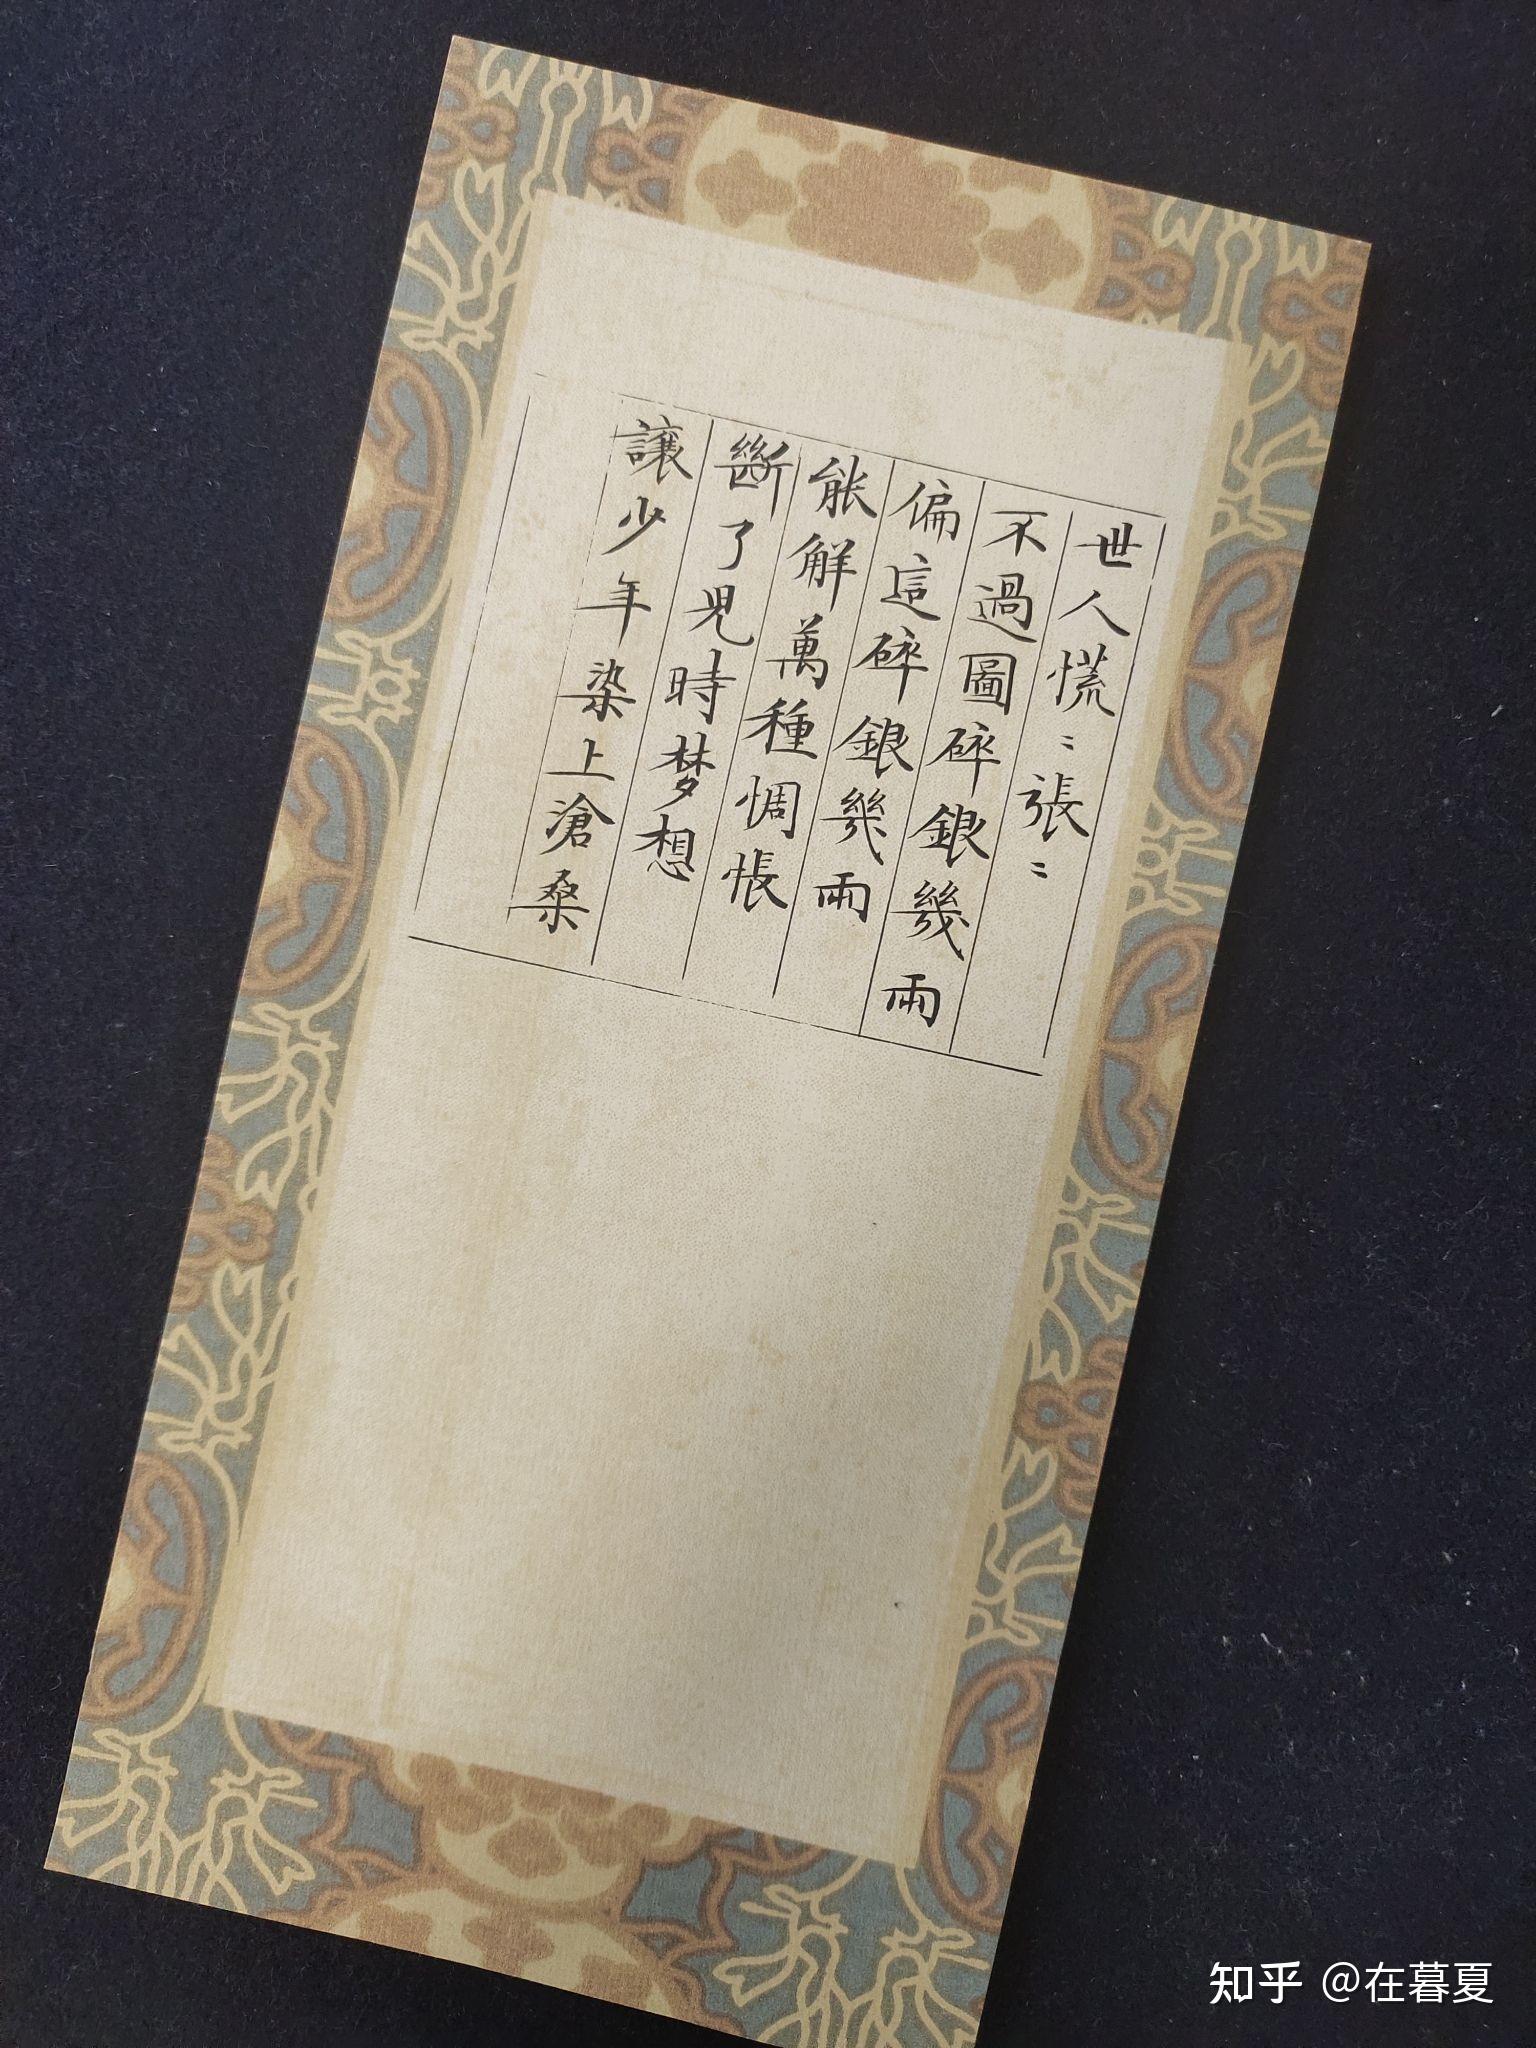 世人慌〻張〻
不過圖碎銀幾兩
偏這碎銀幾兩
能解萬種惆悵
斷了兒時梦想
讓少年染上滄桑
知乎 @在暮夏